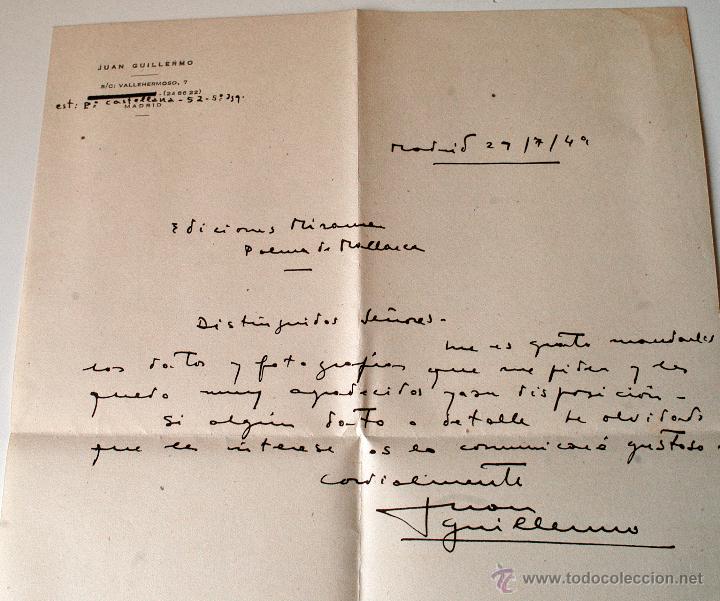 JUAN GUILLERMO
S/C: VALLEHERMOSO, 7
(24 66 22)
est: Pº Castellana - 52 - 5º izq.
MADRID
Madrid 29/7/49
Ediciones Miramar
Palma de Mallorca
Distinguidos Señores -
me es grato mandarles
los datos y fotografías que me piden y les
quedo muy agradecidos y a su disposición -
Si algún dato o detalle he olvidado
que les interese os lo comunicaré gustoso
cordialmente
Juan
Guillermo
© www.todocoleccion.net